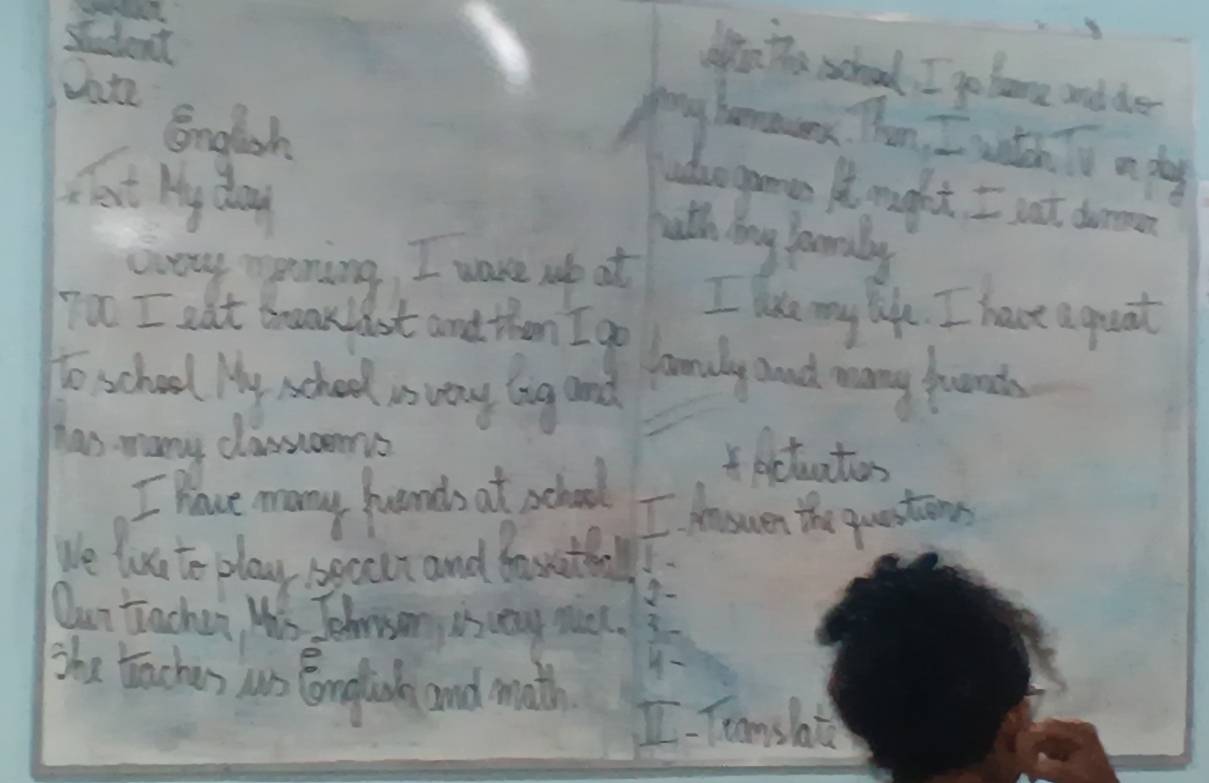 Student
Date
English
Text My day
Every morning, I wake up at
7:00 I eat breakfast and then I go
to school My school is very big and
has many classrooms
I have many friends at school
We like to play soccer and basketball.
Our teacher, Mrs Johnson, is very nice.
She teaches us English and math.
After the school, I go home and do
my homework. Then, I watch TV or play
video games At night, I eat dinner
with my family
I like my life. I have a great
family and many friends
* Activities
I - Answer the questions
1-
2-
3-
4-
II - Translate